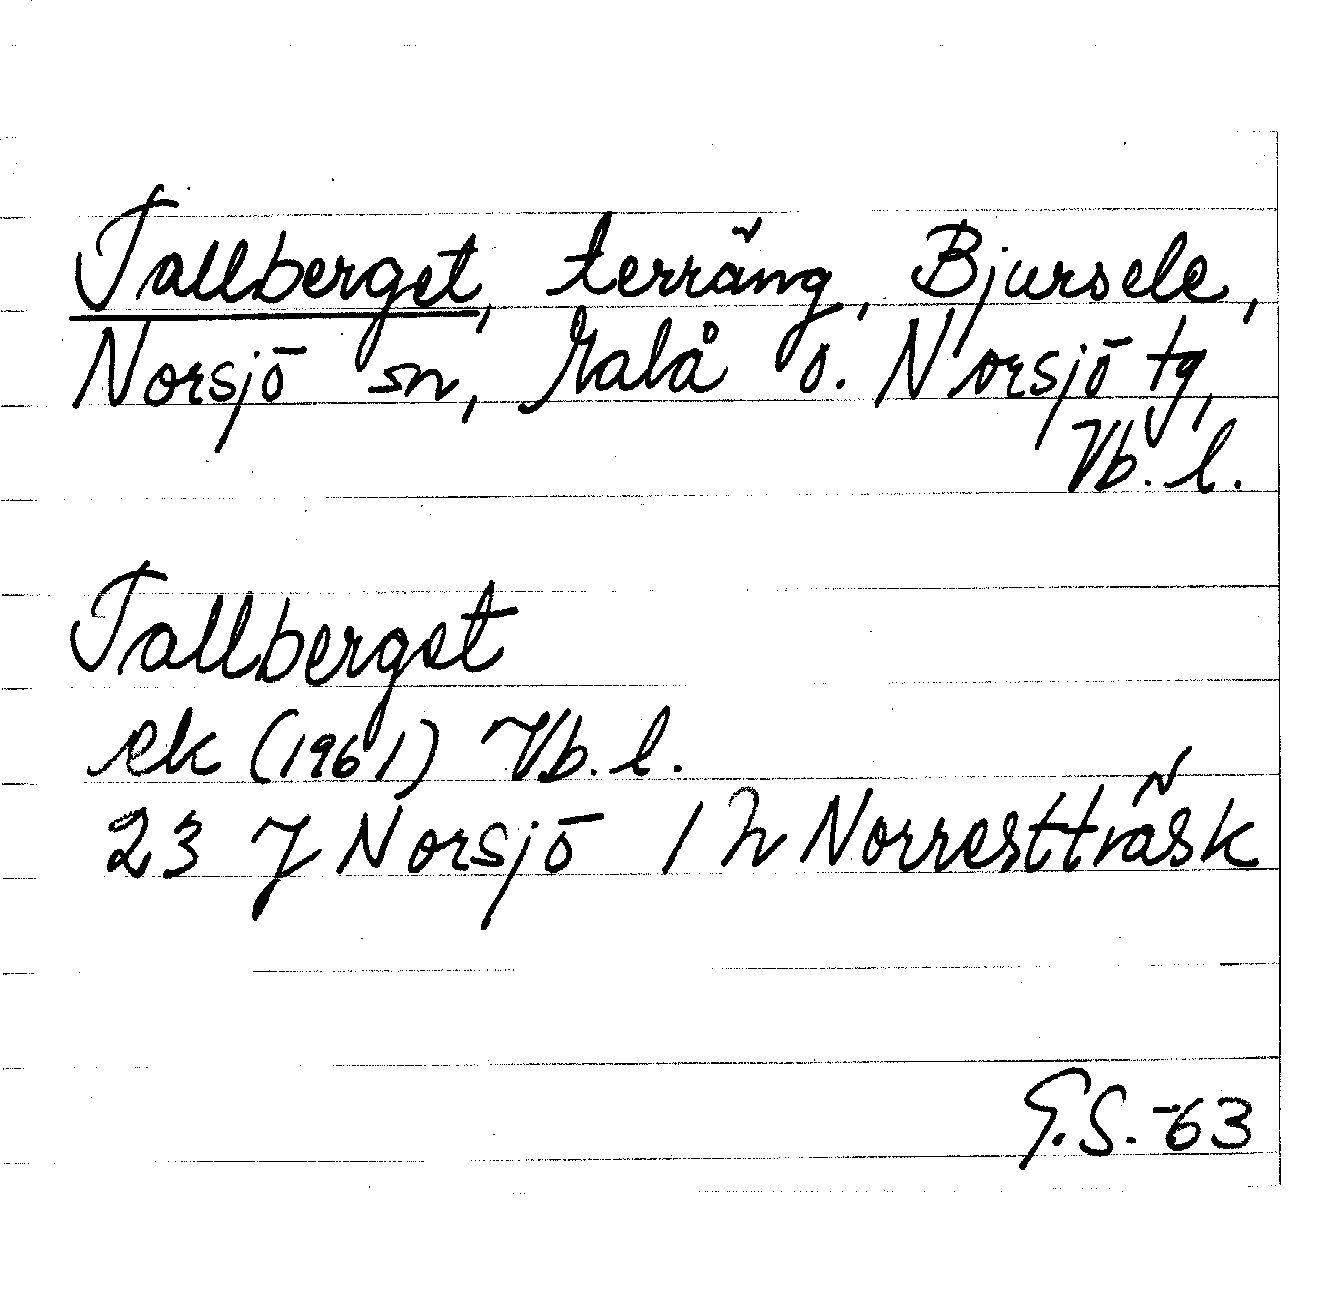 Tallberget, terräng, Bjursele,
Norsjö sn, Malå o. Norsjö tg,
Vb. l.
Tallberget
ek (1961) Vb. l.
23 J Norsjö 1 h Norresttväsk
G.S. -63